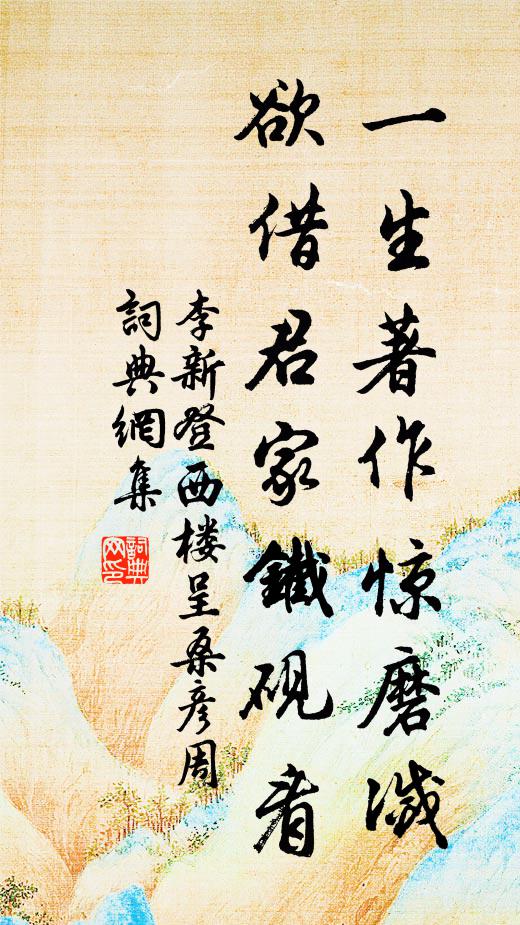 一生著作惊磨灭
欲借君家鐵砚看
李新登西楼呈桑彦周
詞典網集
詞典网印